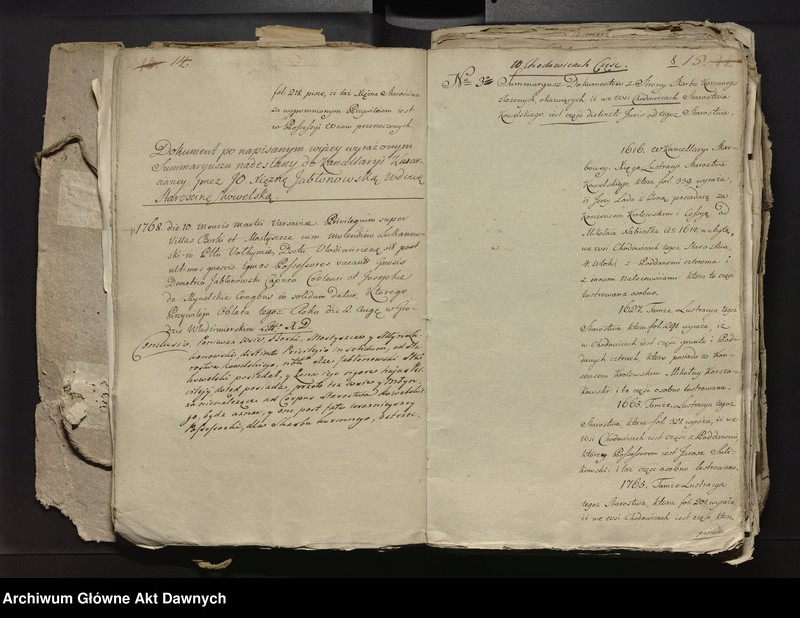 14.
fol. 218 pisze, iż taż Xiężna Starościna
za wspomnionym Przywilejem iest
w Possessyi Wsiow przerzeczonych
Dokument po napisanym wyżey wyrażonym
Summaryuszu nadesłany do Kancellaryi
przez JO. Xiężnę Jabłonowską Wdowę
Starościnę Kowelską.
1768. die 10. mensis martii Varsaviae Privilegium super
Villas Borki et Mostyszcze cum molendino
in Pltu Volhyniae, Dsttu Vlodimiriensi sit post
ultimos quosvis Possessores vacant Gnoso
Demetrio Jabłonowski et Josepha
de Mycielskie Congbus in solidum datur. Ktorego
Przywileju Oblata tegoż Roku die 2 Aug. w Gro-
dzie Włodzimierskim Litt. A.D.
Conclusio. Ponieważ Wsie Borki, Mostyszcze y Młyn
distincto Privilegio in solidum, od Sta-
rostwa Kowelskiego, Jabłonowski Sta
Kowelski posiadał, y Żona iego vigore
dotąd posiada, przeto też Wsie y Młyn,
ad Corpus Starostwa Kowelskie-
go, bydź uznać, y one post fata teraznieyszey
Possessorki, dla Skarbu Koronnego, ostrzec.
W Chodowicach Częsc.
§ 15.
No 3. Summaryusz Dokumentow z Strony Skarbu Koronnego
złożonych, okazuiących iż we Wsi Chodowicach Starostwa
Kowelskiego, iest część distincti Juris od tegoż Starostwa.
1616. w Kancellaryi Skar-
bowey, Xięga Lustracyi Starostwa
Kowelskiego, ktora fol. 339 wyraża,
iż Jerzy Lado z Żoną posiadaią za
Konsensem Krolewskim i Cessyą od
Mikołaia Nabiałka A. 1614 nabytą,
we Wsi Chodowicach tegoż Starostwa,
4. Włoki z Poddanemi i
z innemi Należnościami ktora to część
lustrowana osobno.
1627. Tamże Lustracya tegoż
Starostwa, ktora fol. 291 wyraża, iż
w Chodowicach iest część gruntu i Pod-
danych czterech, ktore posiada za Kon-
sensem Krolewskim Mikołay Korcza-
kowski: i ta część osobno lustrowana.
1665. Tamże Lustracya tegoż
Starostwa, ktora fol. 321 wyraża, iż we
Wsi Chodowicach iest część z Poddanemi,
ktorey Possessorem iest Jerasz Suli-
kowski: i taż część osobno lustrowana.
1765. Tamże Lustracya
tegoż Starostwa, ktora fol. 201 wyraża
iż we Wsi Chodowicach iest część, ktorą
Archiwum Główne Akt Dawnych